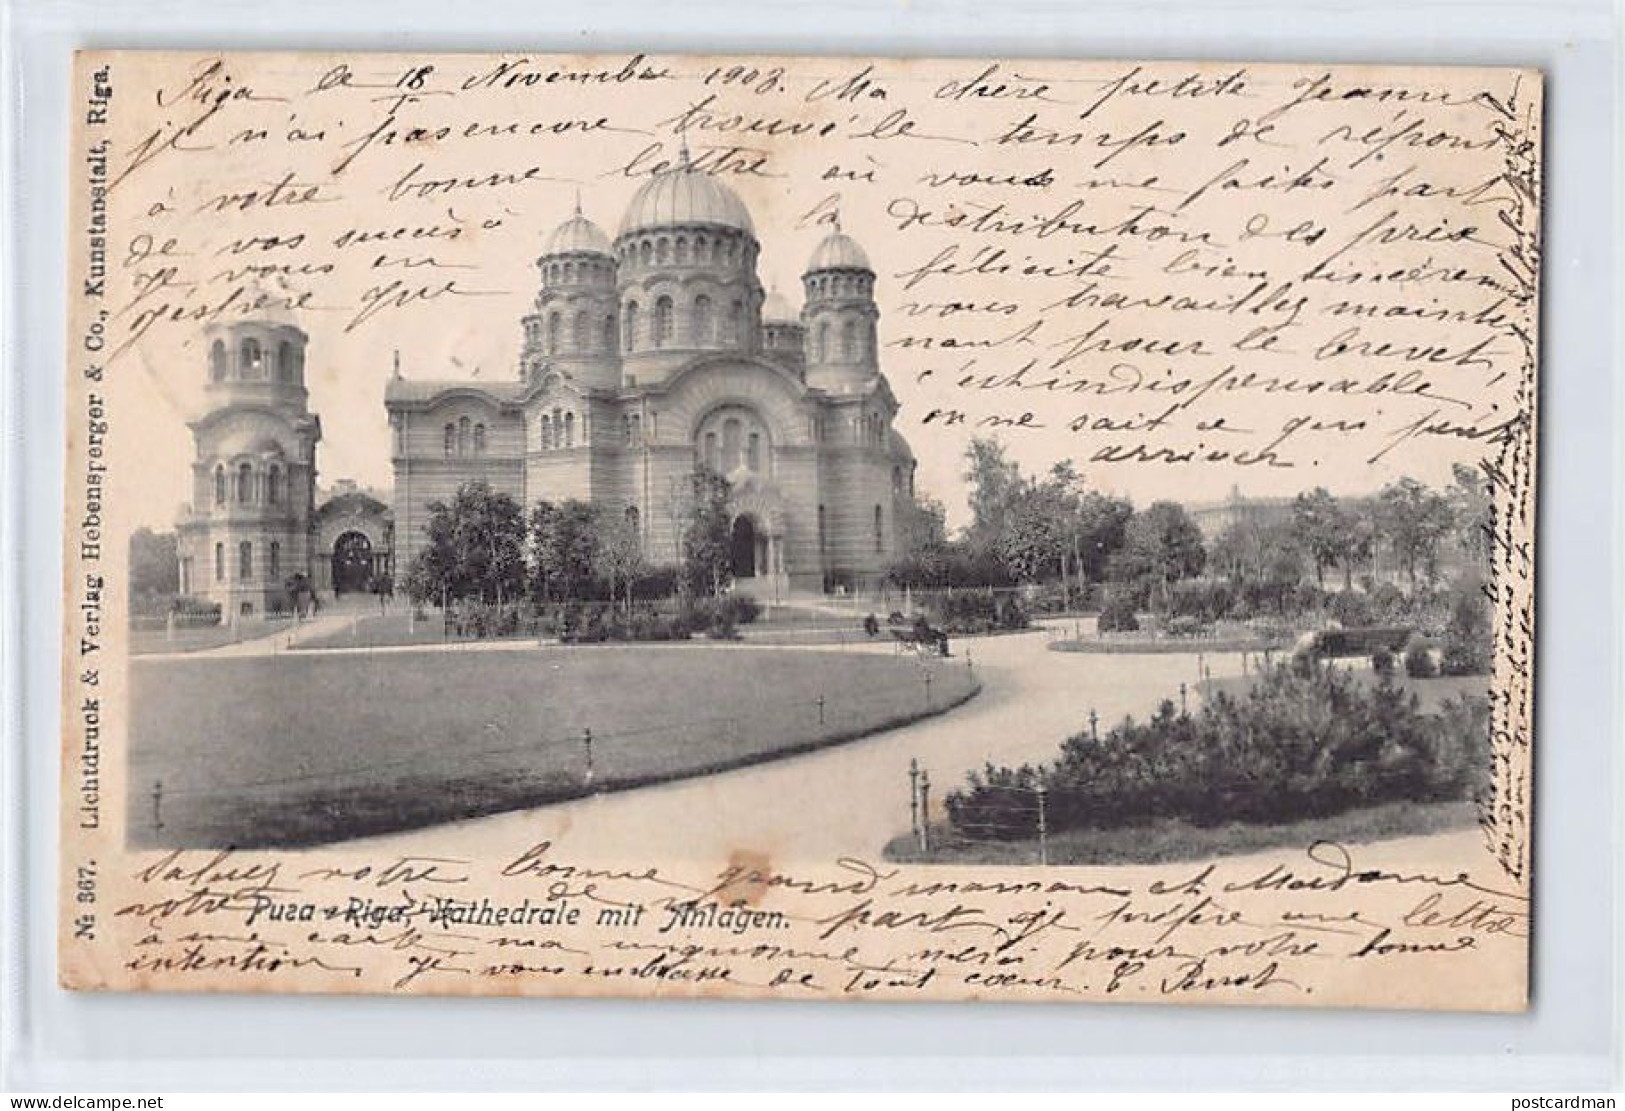 Riga le 18 Novembre 1903. Ma chère petite Jeanne
je n'ai pas encore trouvé le temps de répondre
à votre bonne lettre où vous me faites part
de vos succès à la distribution des prix
Je vous en félicite bien sincèrement
j'espère que vous travaillez mainte
nant pour le brevet,
c'est indispensable,
on ne sait ce qui peut
arriver.
Saluez votre bonne grand'maman et Madame
votre de ma part, je préfère une lettre
à une carte ma mignonne, merci pour votre bonne
intention, Je vous embrasse de tout coeur. C. Perrot.
Рига - Riga, Kathedrale mit Anlagen.
№ 367. Lichtdruck & Verlag Hebensperger & Co., Kunstanstalt, Riga.
postcardman